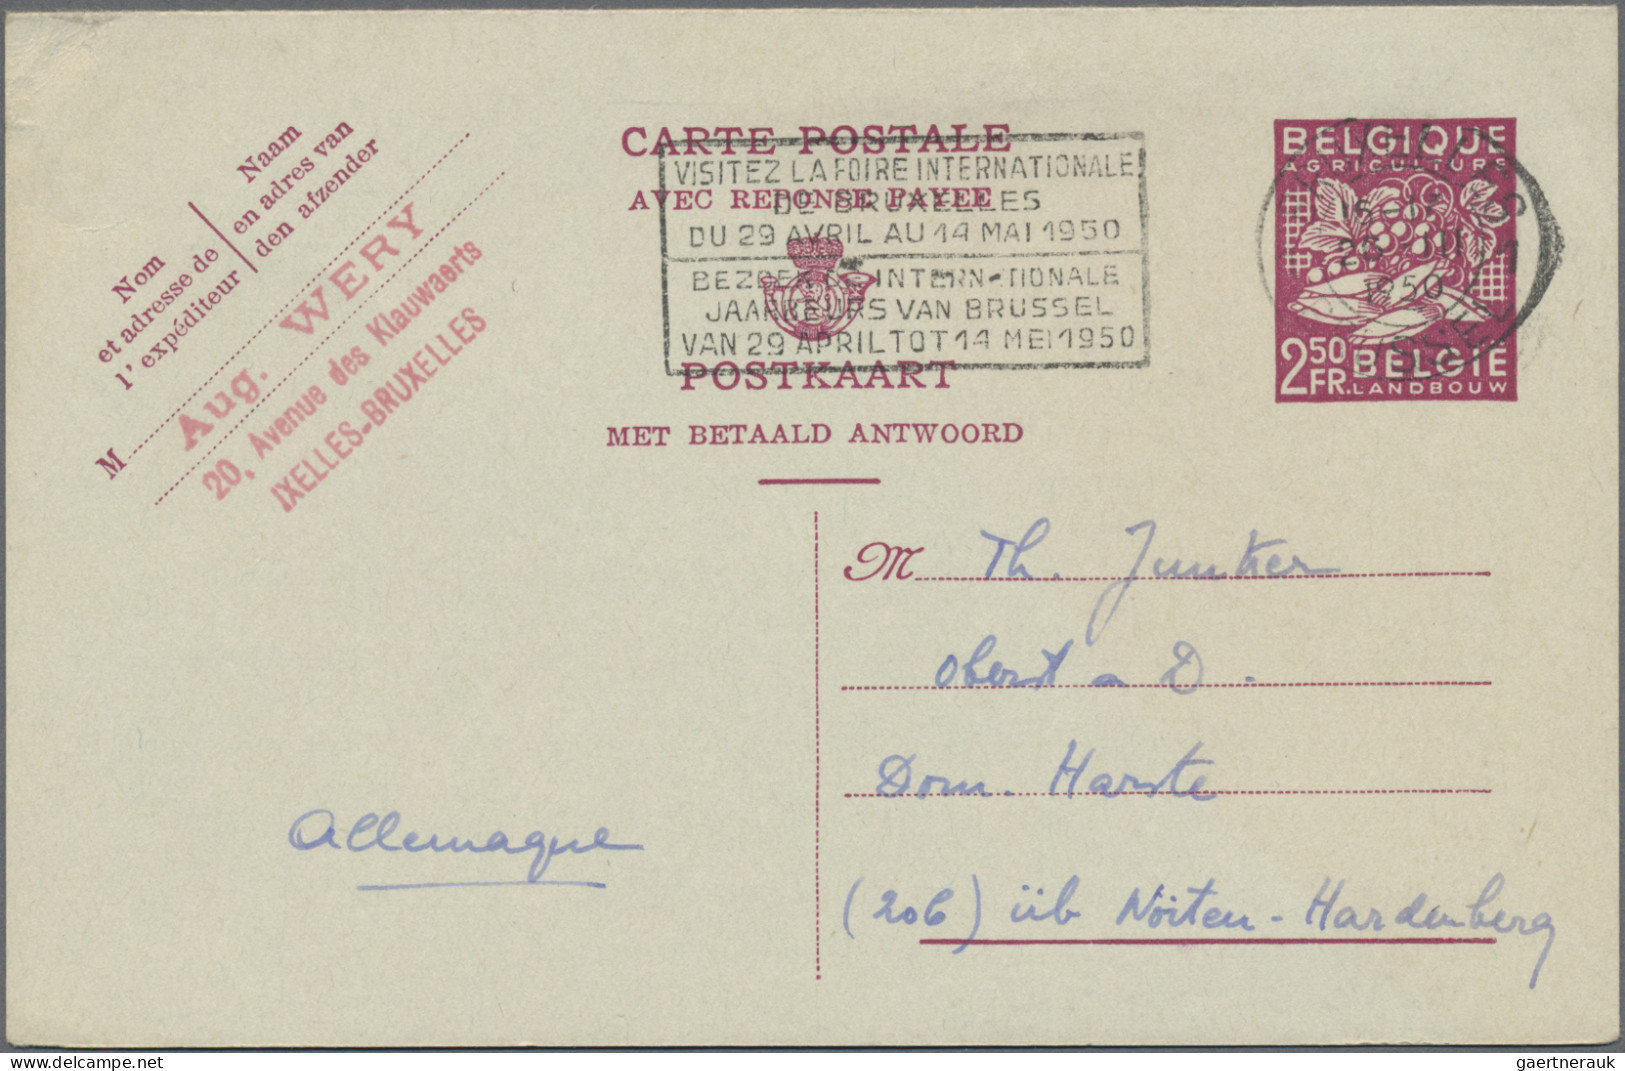 Nom
et adresse de
l'expéditeur
Naam
en adres van
den afzender
M
Aug. WERY
20, Avenue des Klauwaerts
IXELLES-BRUXELLES
CARTE POSTALE
AVEC REPONSE PAYEE
VISITEZ LA FOIRE INTERNATIONALE
DE BRUXELLES
DU 29 AVRIL AU 14 MAI 1950
BEZOEK DE INTERNATIONALE
JAARBEURS VAN BRUSSEL
VAN 29 APRIL TOT 14 MEI 1950
POSTKAART
MET BETAALD ANTWOORD
BELGIQUE
AGRICULTURE
2.50 FR.
BELGIE
LANDBOUW
1950
M Th. Junker
Oberst a D.
Dom. Harste
(20b) üb Nörten-Hardenberg
Allemagne
gaertnerauk